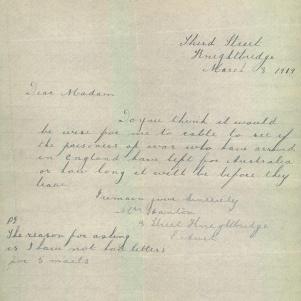 Third Street
Knightbridge
March 3 1919
Dear Madam
Do you think it would
be wise for me to cable to see if
the prisoners of war who have arrived
in England have left for Australia
or how long it will be before they
leave
I remain yours sincerely
Mrs
3 Street Knightbridge
PS
The reason for asking
is I have not had letters
for 5 mails